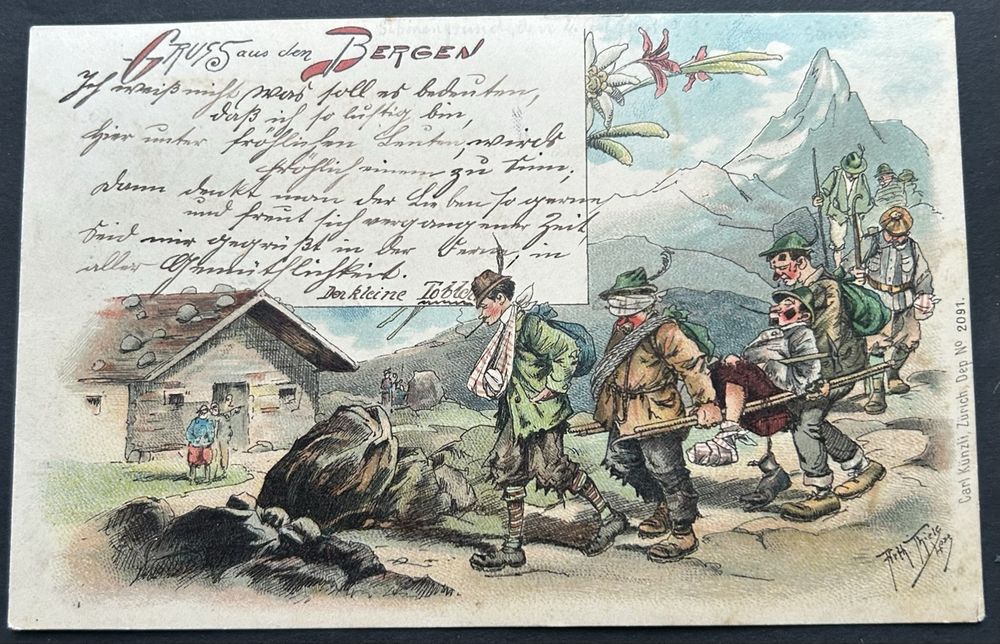 Gruss aus den Bergen
Ich weiß nicht was soll es bedeuten,
daß ich so lustig bin,
Hier unter fröhlichen Leuten, wirds
fröhlich einem zu Sinn.
Dann denkt man der Lieben so gerne
und freut sich vergangener Zeit,
Seid mir gegrüßt in der Ferne, in
aller Gemüthlichkeit.
Der kleine Tobler
Carl Künzli, Zürich. Dep. No 2091.
Arth. Thiele